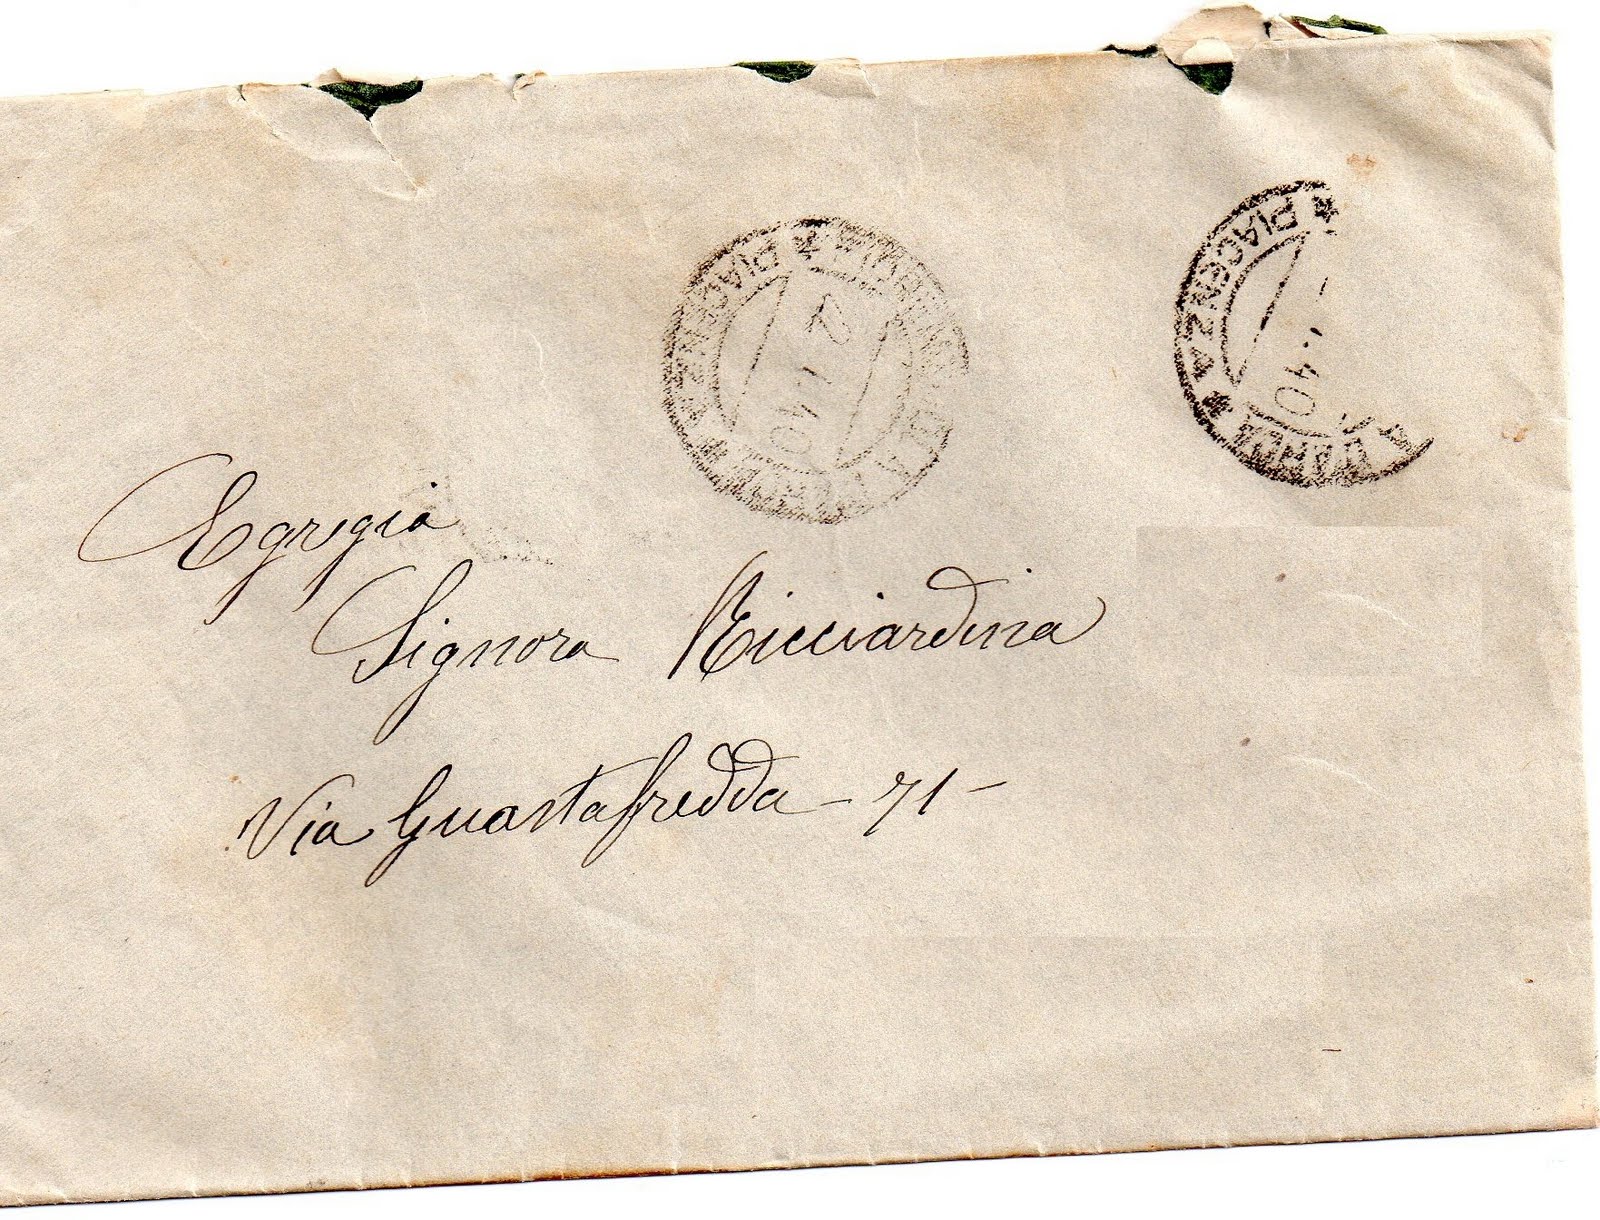 * PIACENZA *
2 1 40
* PIACENZA *
40
Egregia
Signora Ricciardina
Via Guastafredda - 71 -